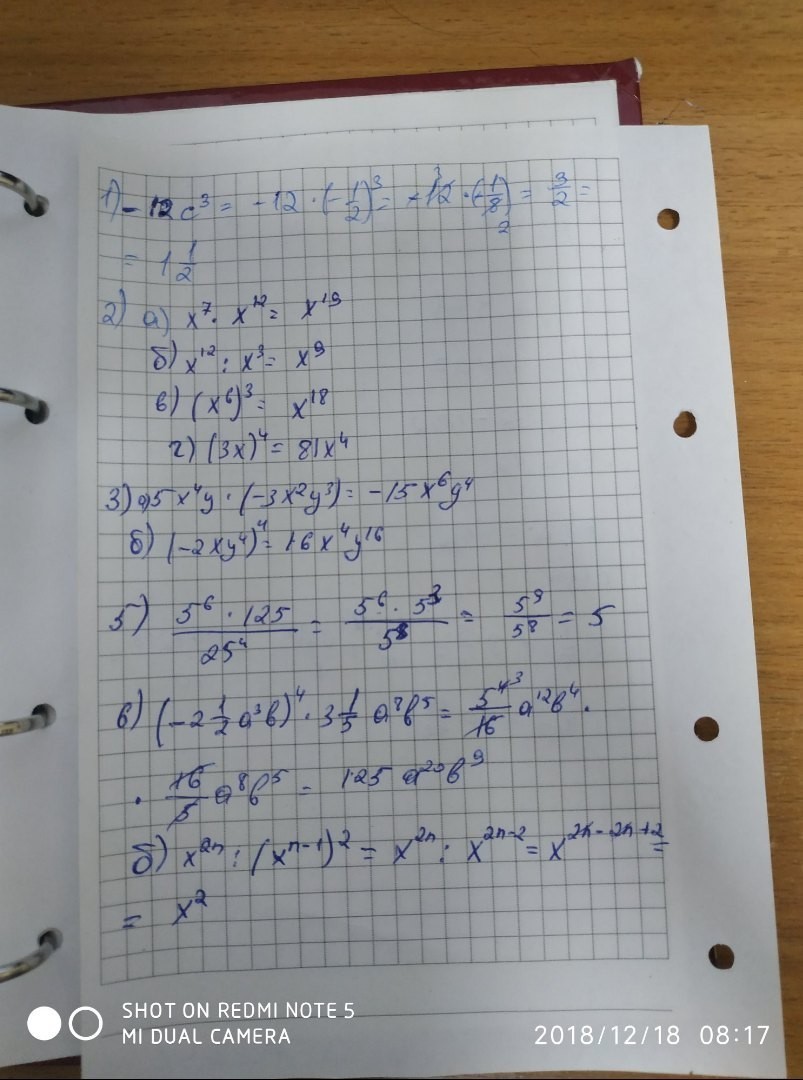 1) -12c³ = -12 · (-1/2)³ = -12 · (-1/8) = 3/2 =
= 1 1/2
2) а) x⁷ · x¹² = x¹⁹
б) x¹² : x³ = x⁹
в) (x⁶)³ = x¹⁸
г) (3x)⁴ = 81x⁴
3) а) 5x⁴y · (-3x²y³) = -15x⁶y⁴
б) (-2xy⁴)⁴ = 16x⁴y¹⁶
5) 5⁶ · 125 / 25⁴ = 5⁶ · 5³ / 5⁸ = 5⁹ / 5⁸ = 5
6) (-2 1/2 a³b)⁴ · 3 1/5 a⁸b⁵ = 5⁴/16 a¹²b⁴ ·
· 16/5 a⁸b⁵ = 125 a²⁰b⁹
б) x²ⁿ : (xⁿ⁻¹)² = x²ⁿ : x²ⁿ⁻² = x²ⁿ⁻²ⁿ⁺² =
= x²
SHOT ON REDMI NOTE 5
MI DUAL CAMERA
2018/12/18 08:17